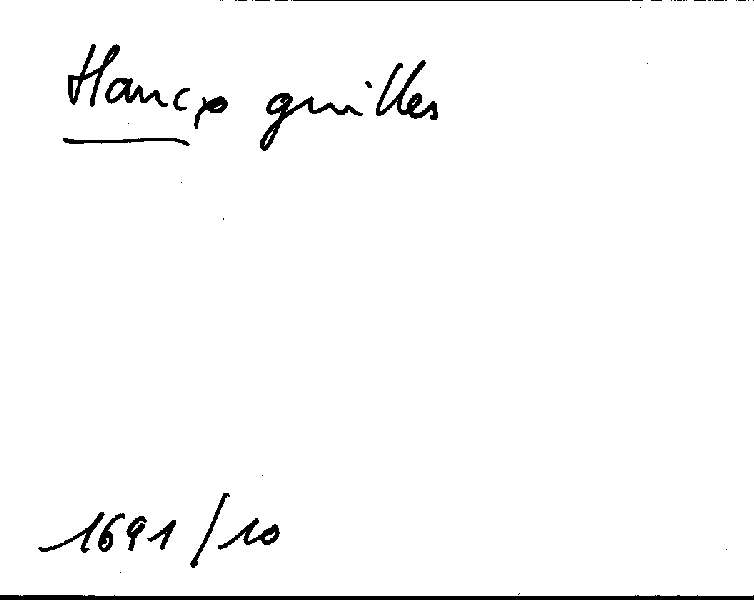 Hancxo guilles
1691/10